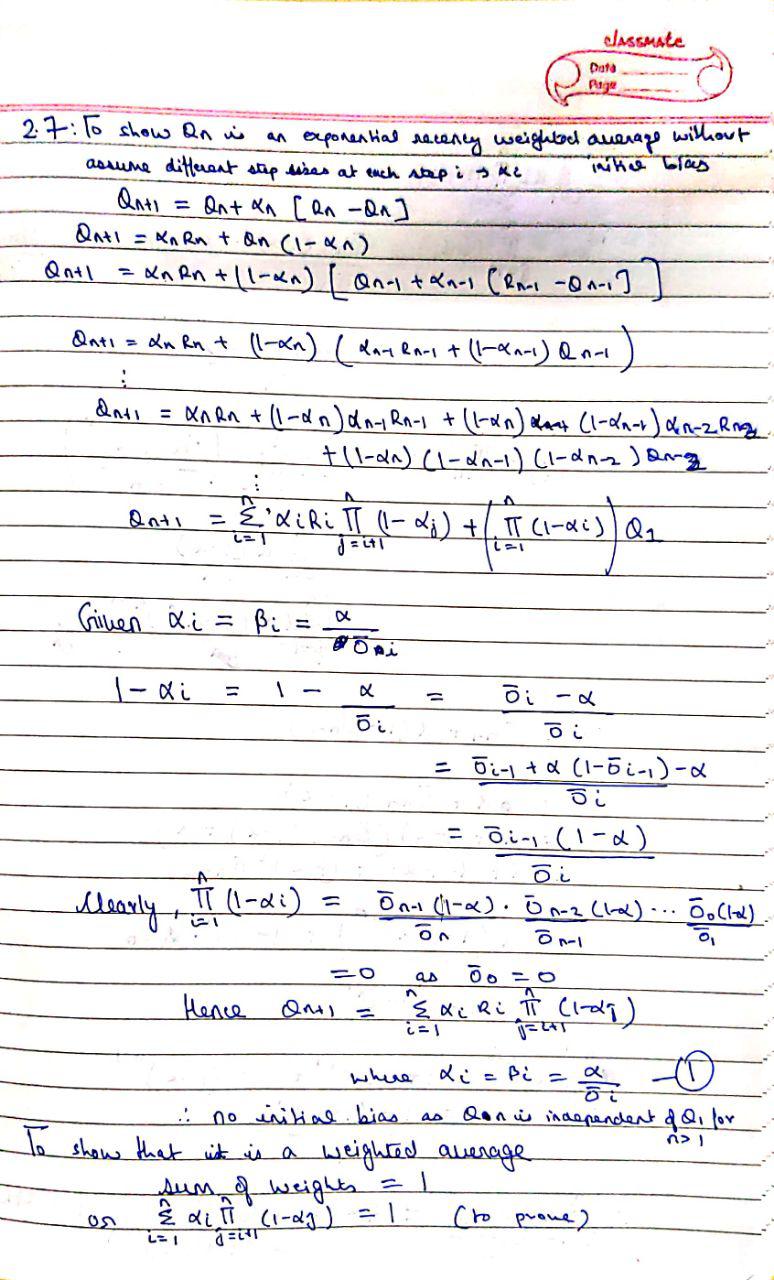 classmate
Date
Page
2.7: To show Qn is an exponential recency weighted average without initial bias
assume different step sizes at each step i → αi
Qn+1 = Qn + αn [Rn - Qn]
Qn+1 = αnRn + Qn (1-αn)
Qn+1 = αnRn + (1-αn) [ Qn-1 + αn-1 (Rn-1 - Qn-1] ]
Qn+1 = αn Rn + (1-αn) ( αn-1 Rn-1 + (1-αn-1) Qn-1 )
⋮
Qn+1 = αnRn + (1-αn) αn-1 Rn-1 + (1-αn) (1-αn-1) αn-2 Rn-2
+ (1-αn) (1-αn-1) (1-αn-2) Qn-2
⋮
Qn+1 = n Σ i=1 αiRi n Π j=i+1 (1-αj) + ( n Π i=1 (1-αi) ) Q1
Given αi = βi = α / ōi
1-αi = 1 - α / ōi = ōi - α / ōi
= ōi-1 + α (1-ōi-1) - α / ōi
= ōi-1 (1-α) / ōi
Clearly, n Π i=1 (1-αi) = ōn-1 (1-α) / ōn · ōn-2 (1-α) / ōn-1 ... ōo (1-α) / ō1
= 0 as ōo = 0
Hence Qn+1 = n Σ i=1 αi Ri n Π j=i+1 (1-αj)
where αi = βi = α / ōi - ①
∴ no initial bias as Qn is independent of Q1 for n>1
To show that it is a weighted average
sum of weights = 1
or n Σ i=1 αi n Π j=i+1 (1-αj) = 1. (to prove)